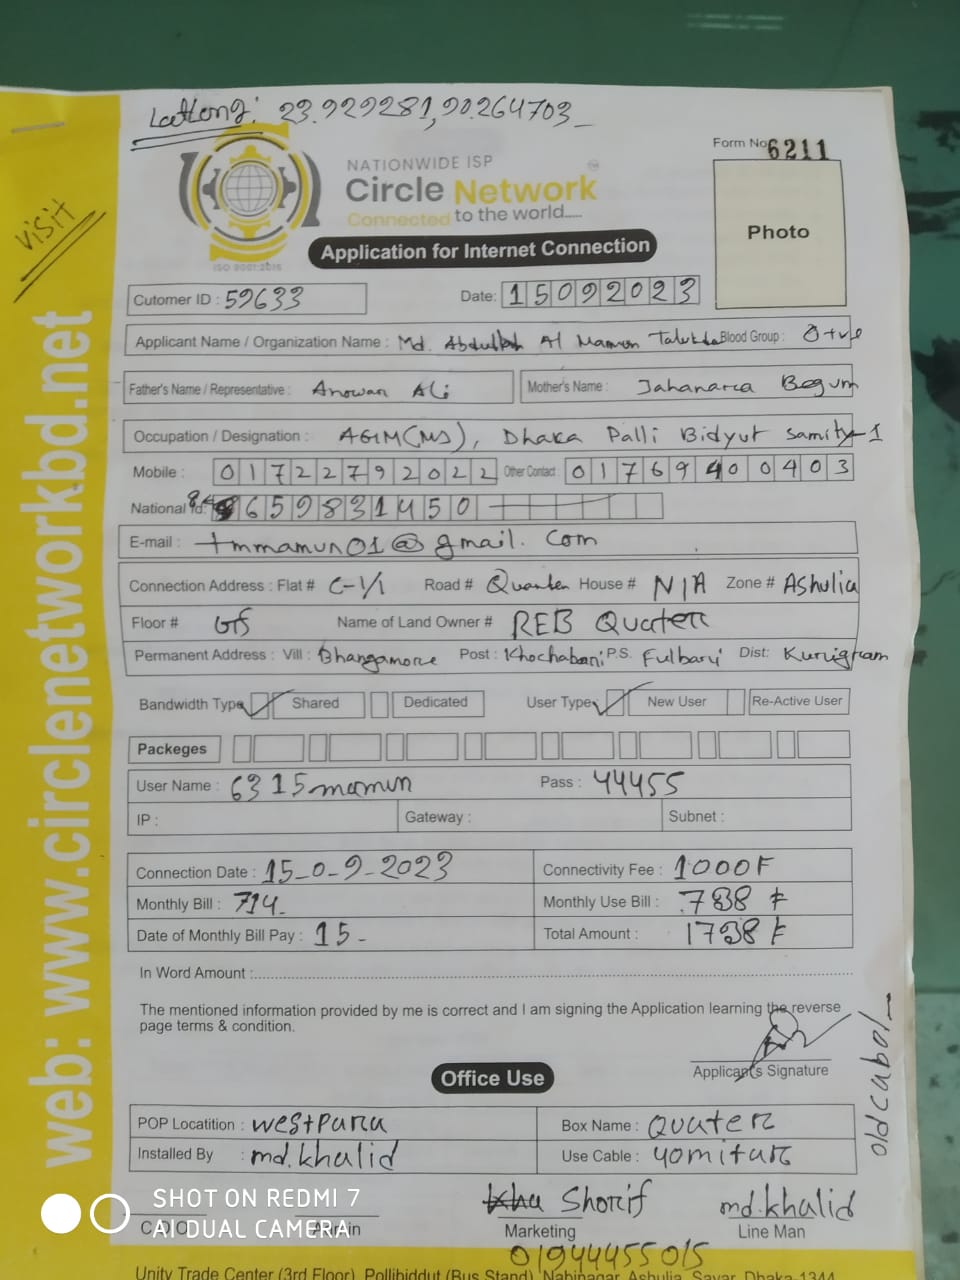 Latlong: 23.929281, 90.264703
visit
Form No 6211
NATIONWIDE ISP
Circle Network
Connected to the world.....
ISO 9001:2015
Photo
Application for Internet Connection
Cutomer ID : 59633 Date: 15092023
Applicant Name / Organization Name : Md. Abdullah Al Mamun Talukda Blood Group : O+ve
Father's Name / Representative : Anowar Ali Mother's Name : Jahanara Begum
Occupation / Designation : AGM(MS), Dhaka Palli Bidyut Samity-1
Mobile : 01722792022 Other Contact : 01769400403
National Id: 8659831450
E-mail : tmmamun01@gmail.com
Connection Address : Flat # C-1/1 Road # Quarter House # N/A Zone # Ashulia
Floor # Gf Name of Land Owner # REB Quater
Permanent Address : Vill : Bhangamore Post : Khochabari P.S. Fulbari Dist: Kurigram
Bandwidth Type Shared Dedicated User Type New User Re-Active User
Packeges
User Name : 6315mamun Pass : 44455
IP : Gateway : Subnet :
Connection Date : 15-0-9-2023 Connectivity Fee : 1000
Monthly Bill : 714 Monthly Use Bill : 738
Date of Monthly Bill Pay : 15 - Total Amount : 1738
In Word Amount :
The mentioned information provided by me is correct and I am signing the Application learning the reverse
page terms & condition.
Applicant's Signature
old cabol
Office Use
POP Locatition : westpara Box Name : Quater
Installed By : md.khalid Use Cable : 40mitar
Shorif md.khalid
Admin Marketing Line Man
01944455015
Unity Trade Center (3rd Floor), Pollibiddut (Bus Stand), Nabinagar, Ashulia, Savar, Dhaka-1344
web: www.circlenetworkbd.net
SHOT ON REDMI 7
AI DUAL CAMERA